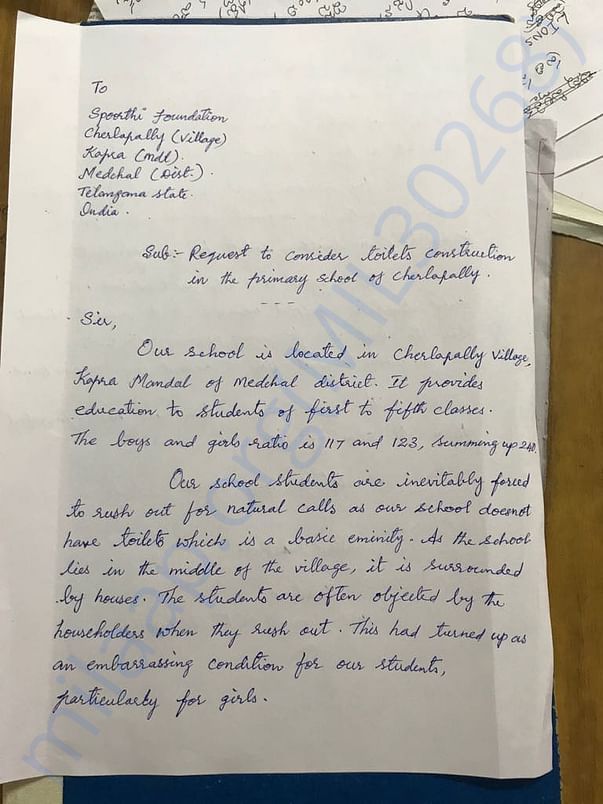 To
Spoorthi Foundation
Cherlapally (Village)
Kapra (mdl).
Medchal (Dist.).
Telangana state.
India.
Sub:- Request to consider toilets construction
in the primary school of Cherlapally.
Sir,
Our school is located in Cherlapally Village,
Kapra Mandal of Medchal district. It provides
education to students of first to fifth classes.
The boys and girls ratio is 117 and 123, summing up 240.
Our school students are inevitably forced
to rush out for natural calls as our school doesnot
have toilets which is a basic eminity. As the school
lies in the middle of the village, it is surrounded
by houses. The students are often objected by the
householders when they rush out. This had turned up as
an embarrassing condition for our students,
particularly for girls.
milaap.org(MIL302687)